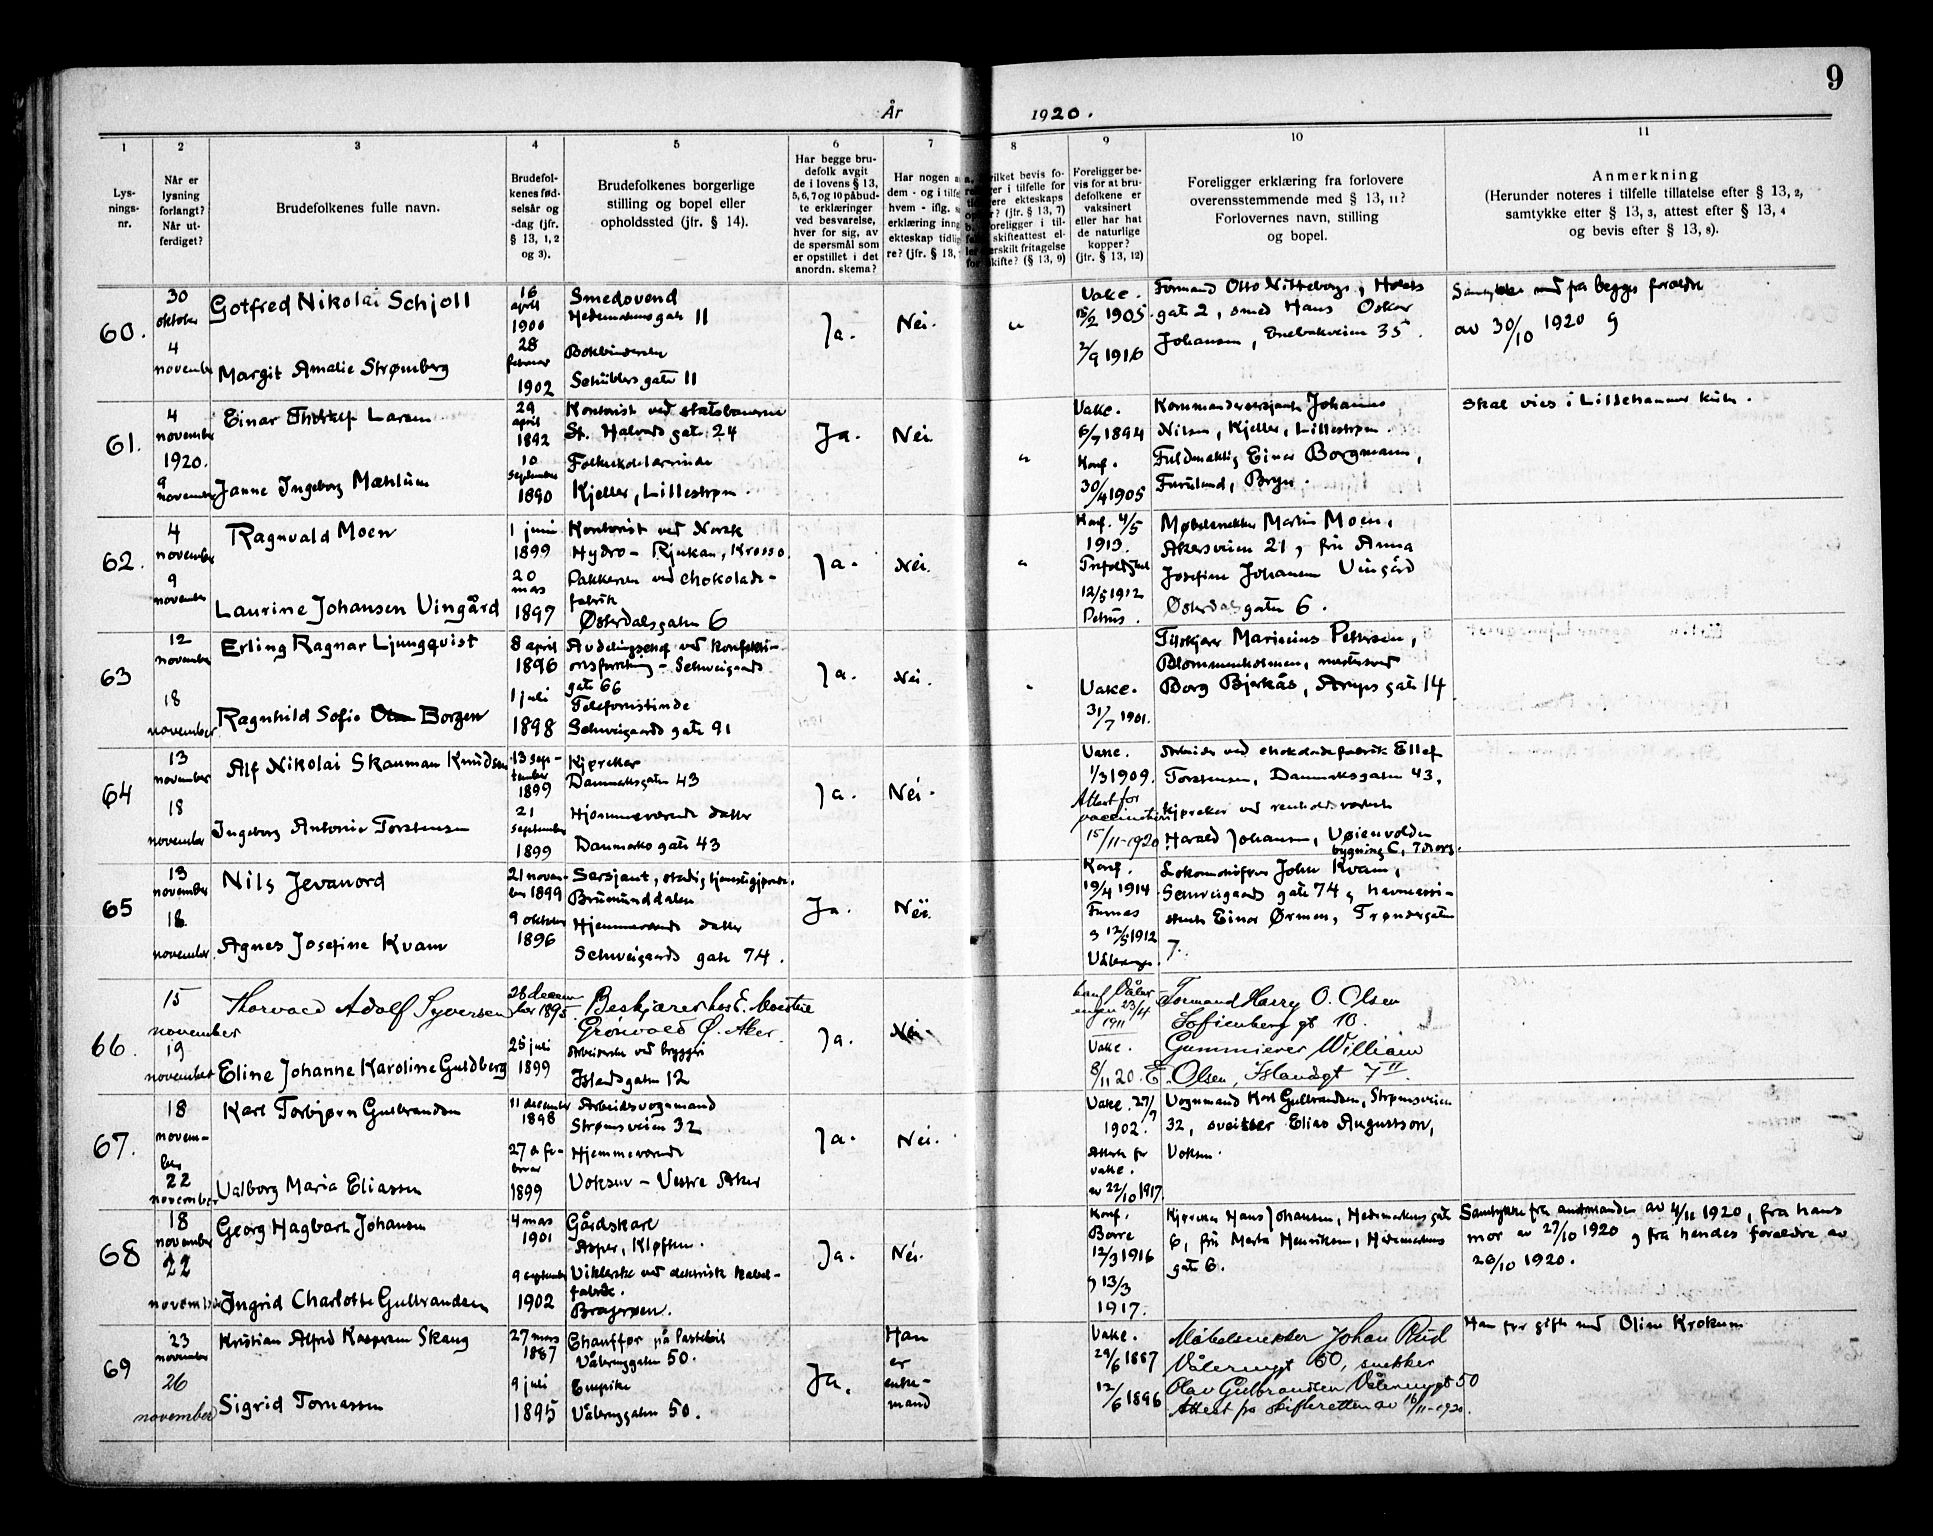 9
År 1920.
1 2 3 4 5 6 7 8 9 10 11
Lys-
nings-
nr.
Når er
lysning
forlangt?
Når ut-
ferdiget?
Brudefolkenes fulle navn.
Brudefol-
kenes fød-
selsår og
-dag (jfr.
§ 13, 1, 2
og 3).
Brudefolkenes borgerlige
stilling og bopel eller
opholdssted (jfr. § 14).
Har begge bru-
defolk avgit
de i lovens § 13,
5, 6, 7 og 10 påbud-
te erklæringer
ved besvarelse,
hver for sig, av
de spørsmål som
er opstillet i det
anordn. skema?
Har nogen a
dem - og i tilfe
hvem - iflg.
erklæring inng
ekteskap tidlig
re? (jfr. § 13,
Foreligger be-
vis for at bru-
defolkene er
vaksinert
eller har hat
de naturlige
kopper?
(jfr. § 13, 12)
Foreligger erklæring fra forlovere
overensstemmende med § 13, 11?
Forlovernes navn, stilling
og bopel.
Anmerkning
(Herunder noteres i tilfelle tillatelse efter § 13, 2,
samtykke efter § 13, 3, attest efter § 13, 4
og bevis efter § 13, 8).
60.
30
oktober
4
november
Gotfred Nikolai Schjoll
Margit Amalie Strømberg
16
april
1900
28
februar
1902
Smedsvend
Hedemarkens gate 11
Bokbinderske
Schüblers gate 11
Ja.
Nei.
Vakc.
15/2 1905.
2/9 1916
Formand Otto Nitteberg, Holsts
gate 2, smed Hans Oskar
Johansen, Enebakveien 35.
Samtykke fra begges foreldre
av 30/10 1920
61.
4
november
1920.
9
november
Einar Larsen
Janne Ingeborg Mæhlum
29
april
1892
10
september
1890
Kontorist ved statsbanerne
St. Halvards gate 24
Folkeskolelærerinde
Kjeller, Lillestrøm.
Ja.
Nei.
Vakc.
6/7 1894
Konf.
30/4 1905
Kommandersersjant Johannes
Nilsen, Kjeller, Lillestrøm.
Fuldmektig Einar Borgmann,
Furulund, Bryn.
Skal vies i Lillehammer kirke.
62.
4
november
9
november
Ragnvald Moen
Laurine Johansen Vingård
1 juni
1899
20
mars
1897
Kontorist ved Norsk
Hydro - Rjukan, Krosso.
Pakkerske ved chokolade-
fabrik
Østerdalsgaten 6
Ja.
Nei.
Konf. 4/5
1913.
12/5 1912
Petrus.
Møbelsnekker Martin Moen,
Akersveien 21, fru Anna
Josefine Johansen Vingård
Østerdalsgaten 6.
63
12
november
18
november
Erling Ragnar Ljungqvist
Ragnhild Sofie Borgen
8 april
1896
1 juli
1898
Avdelingschef ved konfeksi-
onsforretning - Schweigaards
gate 66
Telefonistinde
Schweigaards gate 91
Ja.
Nei.
Vakc.
31/7 1901.
Tilskjærer Marinius Pettersen,
Blommenholmen,
Borg Bjerkås, Arups gate 14
64
13
november
18
november
Alf Nikolai Skauman Knudsen
Ingeborg Antonie Torstensen
13 sep-
tember
1899
21
september
1899
Kjørekar
Danmarksgaten 43
Hjemmeværende datter
Danmarks gate 43
Ja.
Nei.
Vakc.
1/3 1909.
Attest for
vaccination
15/11-1920
Arbeider ved chokoladefabrik Ellef
Torstensen, Danmarksgaten 43,
kjørekar ved renholdsverket
Harald Johansen, Vøienvolden
bygning C,
65
13
november
18
november
Nils Jevanord
Agnes Josefine Kvam
21 novem-
ber 1899
9 oktober
1896
Sersjant, stadig tjenestegjørende.
Brumunddalen
Hjemmeværende datter
Schweigaards gate 74.
Ja.
Nei.
Konf.
19/4 1914
Furnes
12/5 1912
Vålerengen.
Lokomotivfører John Kvam,
Schweigaards gate 74, havneassi-
stent Einar Ørmen, Trøndergaten
7.
66.
15
november
19
november
Thorvald Adolf Syversen
Eline Johanne Karoline Guldberg
28 decem-
ber 1895.
25 juli
1899
Beskjærer hos E. Moestue
Grönvold Ø. Aker.
Arbeiderske ved bryggeri
Islandsgaten 12
Ja.
Nei.
konf Våler-
engen 23/4
1911
Vakc.
8/11 20.
Formand Harry O. Olsen
Sofienberg gt 10.
Gummierer William
E. Olsen, Islandgt 7 II.
67.
18
novem-
ber
22
november
Karl Torbjørn Gulbrandsen
Valborg Maria Eliassen
11 december
1898
27 de fe-
bruar
1899
Arbeidsvognmand
Strømsveien 32
Hjemmeværende
Voksen - Vestre Aker
Ja.
Nei.
Vakc. 27/7
1902.
Attest for
vakc.
av 22/10 1917.
Vognmand Karl Gulbrandsen, Strømsveien
32, sveitser Elias Augustson,
Voksen.
68
18
november
22
november
Georg Hagbart Johansen
Ingrid Charlotte Gulbrandsen
4 mars
1901
9 september
1902
Gårdskarl
Asper, Kløften.
Viklerske ved elektrisk kabel-
fabrik.
Bragerøen.
Ja.
Nei.
Konf.
Borre
12/3 1916
13/3
1917.
Kjørekar Hans Johansen, Hedemarkens gate
6, fru Marta Henriksen, Hedemarkens
gate 6.
Samtykke fra amtmanden av 4/11 1920, fra hans
mor av 27/10 1920 og fra hendes foreldre av
20/10 1920.
69
23
november
26
november
Kristian Alfred Kaspersen Skaug
Sigrid Tomassen
27 mars
1887
9 juli
1895
Chauffør på lastebil
Vålerenggaten 50.
Enepike
Vålerenggaten 50.
Ja.
Han
er
enke-
mand
Vakc.
29/6 1887
12/6 1896
Møbelsnekker Johan Rud
Vålerenggt 50, snekker
Olav Gulbrandsen Vålerenggt 50
Attest fra skifteretten av 16/11-1920.
Han før gift med Oline Krokum